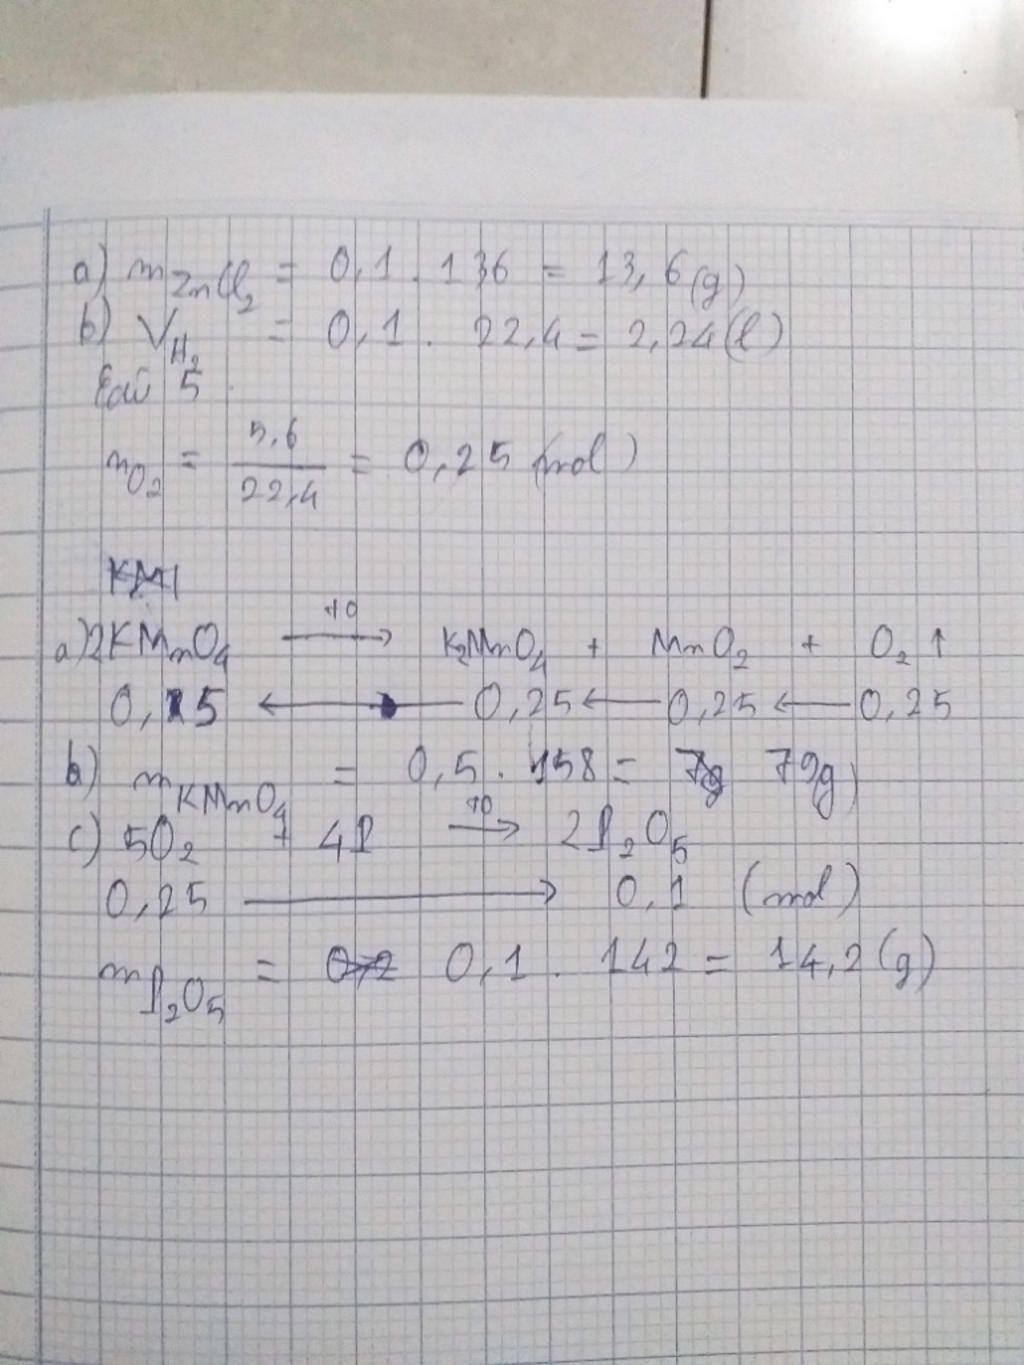 a) mZnCl₂ = 0,1 . 136 = 13,6 (g)
b) VH₂ = 0,1 . 22,4 = 2,24 (l)
Bài 5
nO₂ = 5,6 / 22,4 = 0,25 (mol)
a) 2KMnO₄ —to→ K₂MnO₄ + MnO₂ + O₂ ↑
0,5 ← 0,25 ← 0,25 ← 0,25
b) mKMnO₄ = 0,5 . 158 = 79g)
c) 5O₂ + 4P —to→ 2P₂O₅
0,25 → 0,1 (mol)
mP₂O₅ = 0,1 . 142 = 14,2 (g)